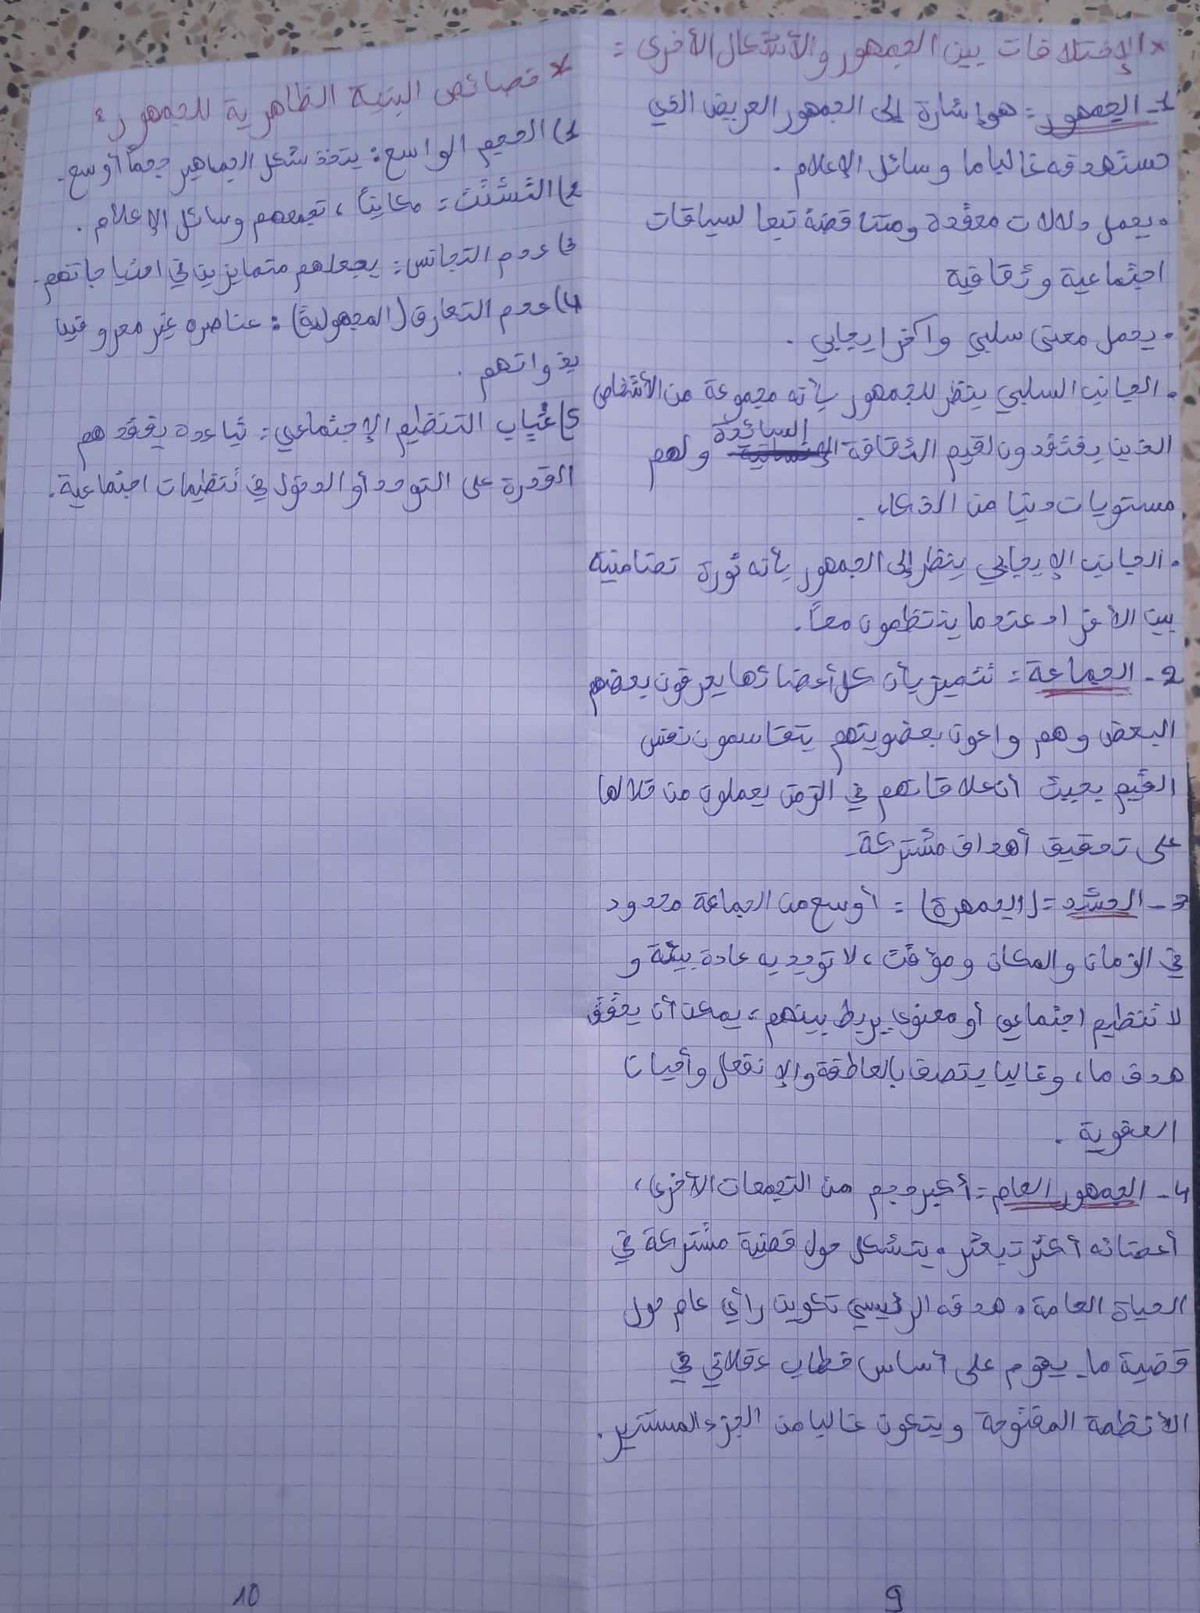 * الإختلافات بين الجمهور والأشكال الأخرى :
1- الجمهور : هو إشارة إلى الجمهور العريض الذي
تستهدفه غالبا ما وسائل الإعلام .
• يحمل دلالات معقدة ومتناقضة تبعا لسياقات
اجتماعية وثقافية
• يحمل معنى سلبي وآخر إيجابي .
• الجانب السلبي ينظر للجمهور بأنه مجموعة من الأشخاص
الذين يفتقدون لقيم الثقافة السائدة ولهم
مستويات دنيا من الذكاء .
• الجانب الإيجابي ينظر إلى الجمهور بأنه ثورة تضامنية
بين الأفراد عندما ينتظمون معاً .
2- الجماعة : تتميز بأن كل أعضائها يعرفون بعضهم
البعض وهم واعون بعضويتهم يتقاسمون نفس
القيم بحيث أن علاقاتهم في الزمن يعملون من خلالها
على تحقيق أهداف مشتركة .
3- الحشد : (الجمهرة) : أوسع من الجماعة محدود
في الزمان والمكان ومؤقت ، لا توجد به عادة بيئة و
لا تنظيم اجتماعي أو معنوي يربط بينهم ، يمكن أن يحقق
هدف ما ، وغالبا يتصف بالعاطفة والإنفعل وأحيان
العفوية .
4- الجمهور العام : أكبر حجم من التجمعات الأخرى ،
أعضائه أكثر تبعثر . يتشكل حول قضية مشتركة في
الحياة العامة . هدفه الرئيسي تكوين رأي عام حول
قضية ما . يقوم على أساس خطاب عقلاني في
الأنظمة المفتوحة ويتكون غالبا من الجزء المستنير .
9
* خصائص البنية الظاهرية للجمهور :
1) الحجم الواسع : يتخذ شكل الجماهير حجماً أوسع .
2) التشتت : مكانياً ، تجمعهم وسائل الإعلام .
3) عدم التجانس : يجعلهم متمايزين في احتياجاتهم .
4) عدم التعارف (المجهولية) : عناصره غير معروفين
بذواتهم .
5) غياب التنظيم الإجتماعي : تباعده يفقدهم
القدرة على التوحد أو الدخول في تنظيمات اجتماعية .
10